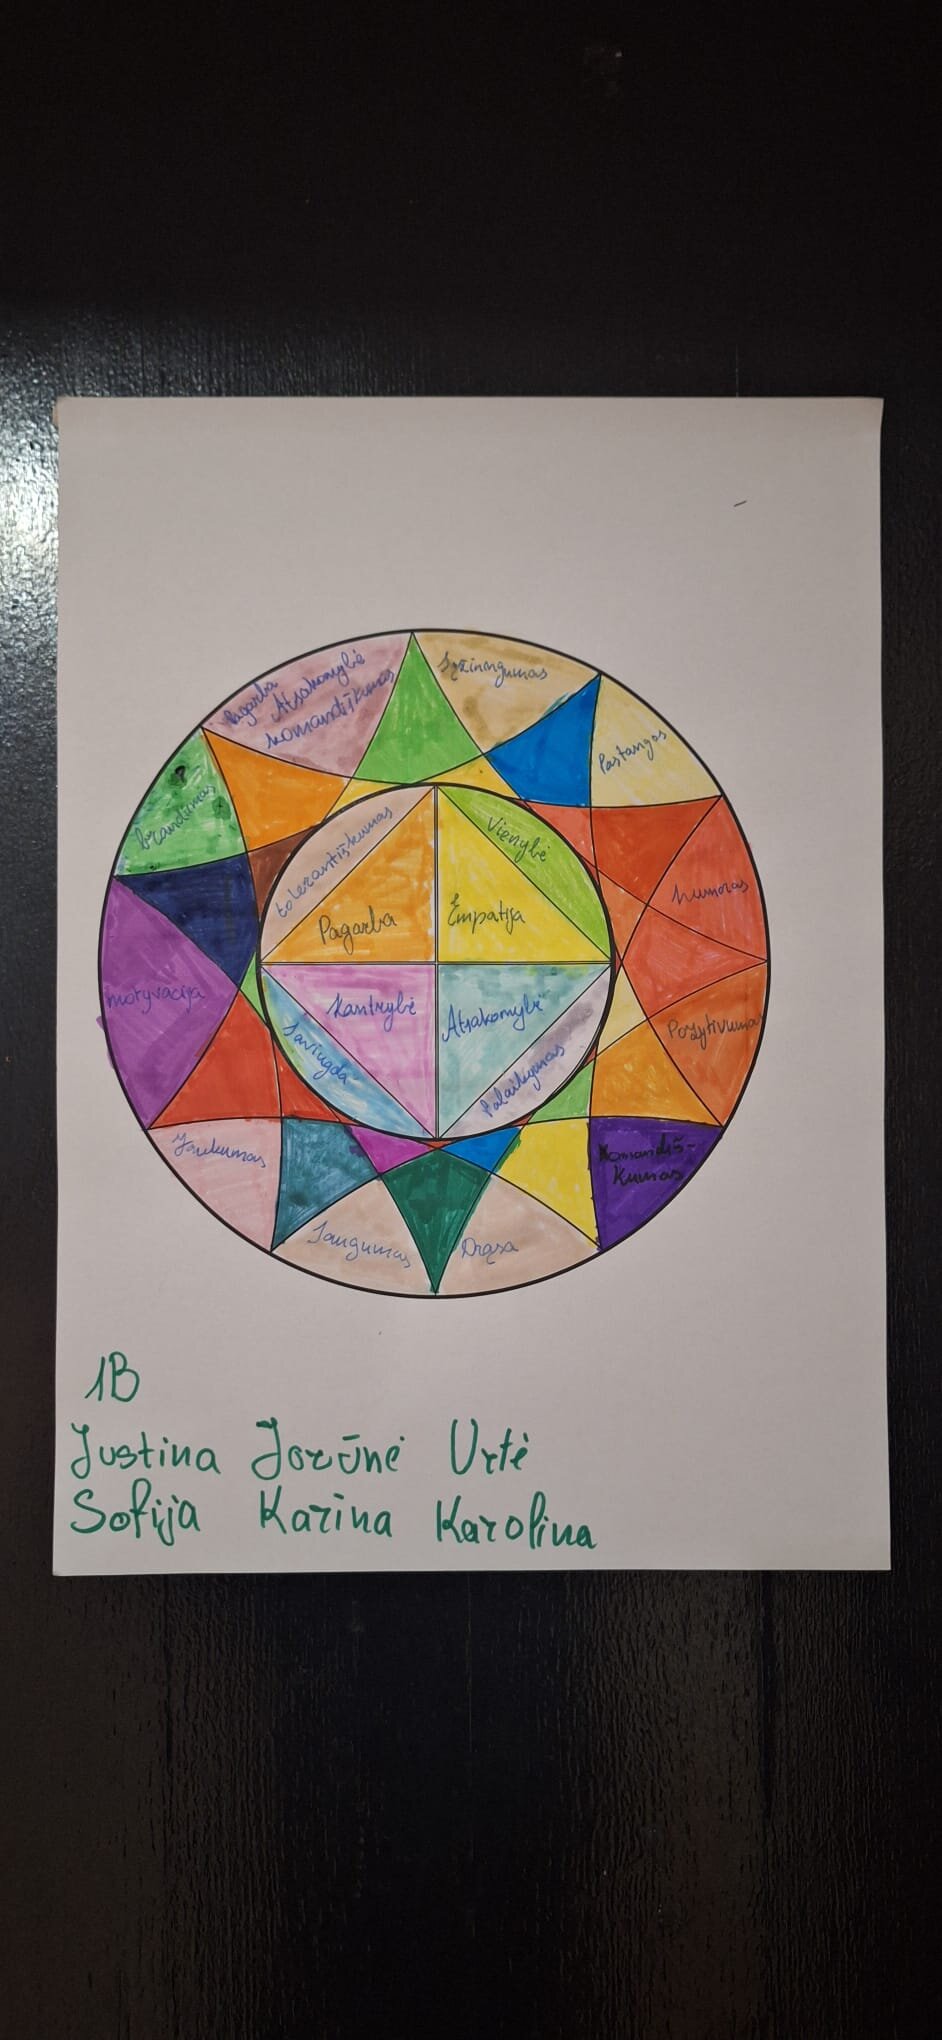 Pagarba
Atsakomybė
Komandiškumas
Sąžiningumas
Pastangos
brandumas
tolerantiškumas
Vienybė
humoras
Pagarba
Empatija
motyvacija
Kantrybė
Atsakomybė
Pozytivumas
Savingda
Palaikymas
Jaukumas
Komandiš-
Kumas
Saugumas
Drąsa
1B
Justina Jorūnė Urtė
Sofija Karina Karolina